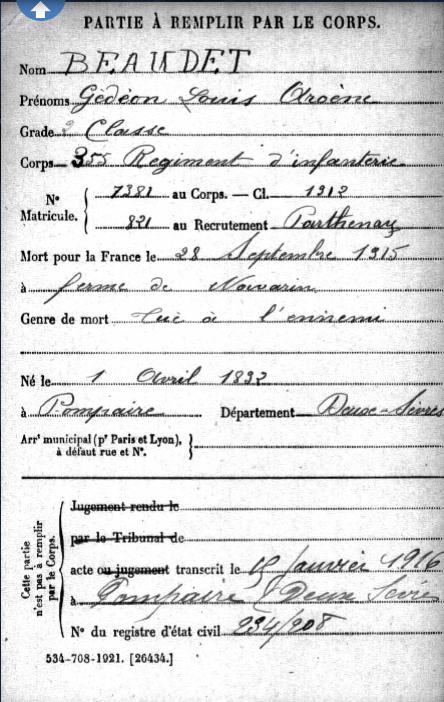 PARTIE À REMPLIR PAR LE CORPS.
Nom BEAUDET
Prénoms Gédéon Louis Arsène
Grade 2 Classe
Corps 355 Regiment d'infanterie
N° Matricule. { 7381 au Corps. — Cl. 1912
821 au Recrutement Parthenay
Mort pour la France le 28 Septembre 1915
à ferme de Navarin
Genre de mort tué à l'ennemi
Né le 1 Avril 1892
à Pompaire Département Deux-Sèvres
Arrt municipal (pr Paris et Lyon), à défaut rue et N°. }
Cette partie n'est pas à remplir par le Corps.
Jugement rendu le
par le Tribunal de
acte ou jugement transcrit le 15 janvier 1916
à Pompaire (Deux Sèvres
N° du registre d'état civil 234/208
534-708-1921. [26434.]